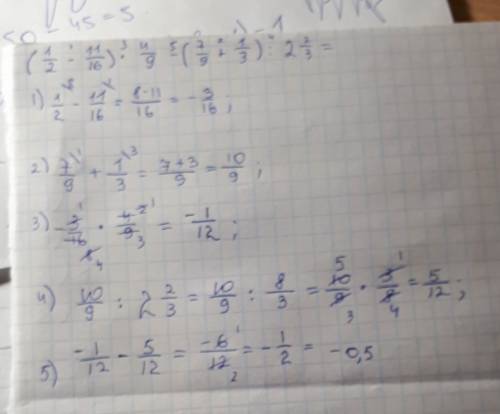 50 - 45 = 5.
- 1
(1/2 - 11/16) · 4/9 - (7/9 + 1/3) : 2 2/3 =
1) 1/2 - 11/16 = 8-11/16 = - 3/16 ;
2) 7/9 + 1/3 = 7+3/9 = 10/9 ;
3) - 3/16 · 4/9 = -1/12 ;
4) 10/9 : 2 2/3 = 10/9 : 8/3 = 10/9 · 3/8 = 5/12 ;
5) -1/12 - 5/12 = -6/12 = - 1/2 = -0,5